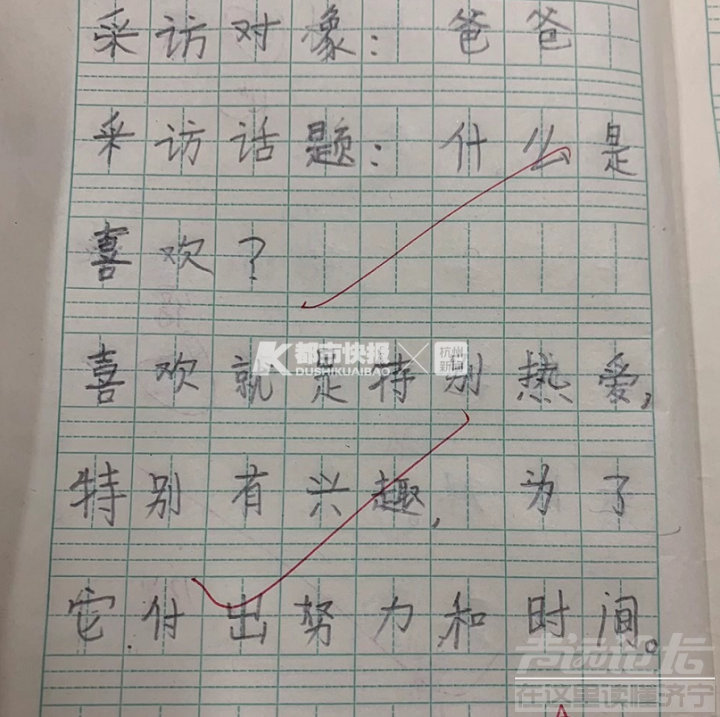 采访对像：爸爸
采访话题：什么是
喜欢？
都市快报
DUSHIKUAIBAO
杭州
新闻
喜欢就是特别热爱，
特别有兴趣，为了
它付出努力和时间。
在这里读懂济宁
A